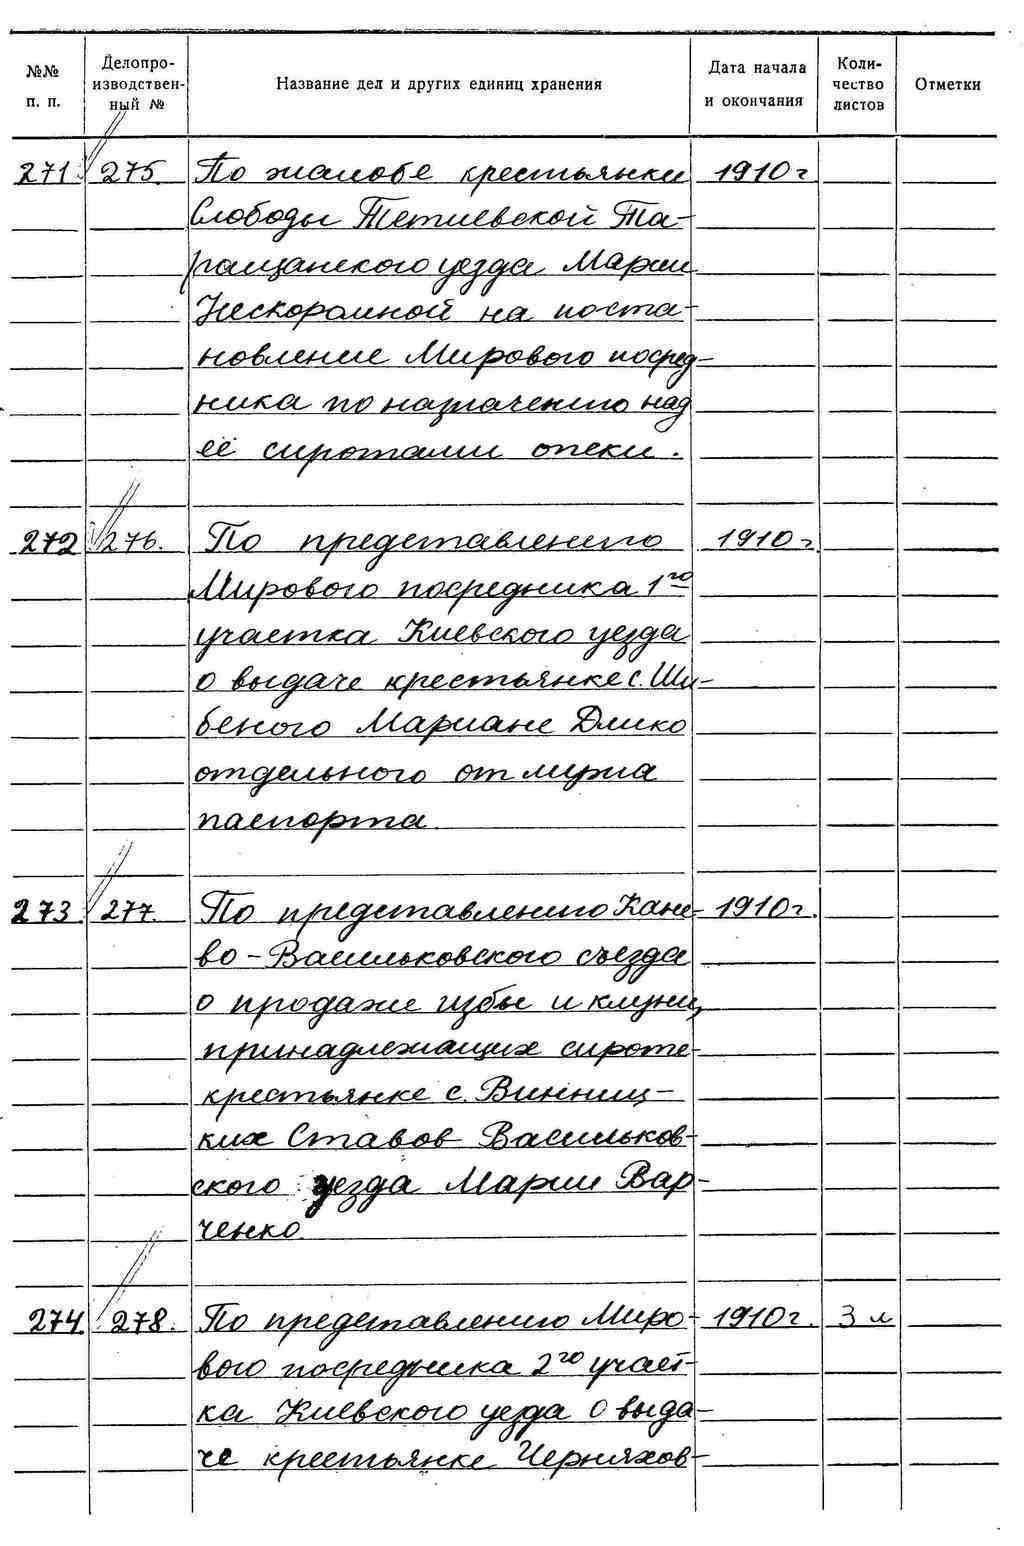 №№ п. п. Делопроизводственный № Название дел и других единиц хранения Дата начала и окончания Количество листов Отметки
271. 275. По жалобе крестьянки 1910 г
Слободы Тетиевской Та-
ращанского уезда Марии
Нескоромной на поста-
новление Мирового посред-
ника по назначению над
её сиротами опеки.
272 276. По представлению 1910 г
Мирового посредника 1го
участка Киевского уезда
о выдаче крестьянке с. Ши-
беного Мариане Дмико
отдельного от мужа
паспорта
273. 277. По представлению Кане- 1910 г.
во-Васильковского съезда
о продаже избы и клуни,
принадлежащих сироте-
крестьянке с. Винниц-
ких Ставов Васильков-
ского уезда Марии Вар-
ченко
274. 278. По представлению Миро- 1910 г. 3 л
вого посредника 2го участ-
ка Киевского уезда о выда-
че крестьянке Черняхов-